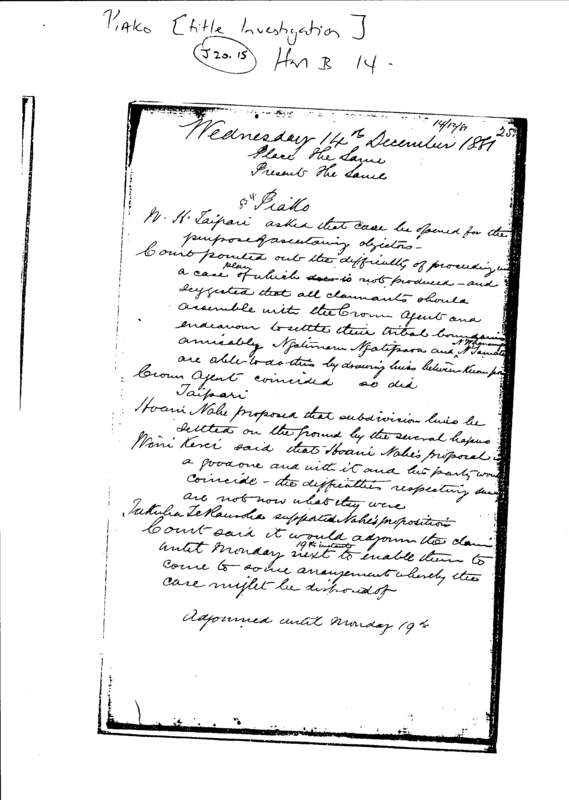 Piako [title Investigation]
J 20.15
Hm B 14 -
14/12/87
25
Wednesday 14th December 1887
Place the Same
Present the Same
Piako
W. H. Taipari asked that case be opened for the
purpose of ascertaining objectors -
Court pointed out the difficulty of proceeding
plan
a case of which is not produced - and
suggested that all claimants should
assemble with the Crown Agent and
endeavour to settle their tribal boundaries
amicably Ngatimaru Ngatipaoa and
are able to do this by drawing lines between
Crown Agent coincided so did
Taipari
Hoani Nahe proposed that subdivision lines be
settled on the ground by the several hapus
Wini Kerei said that Hoani Nahe's proposal
a good one and with it and his party
coincide - the difficulties respecting
are not now what they were
supported Nahe's proposition
Court said it would adjourn the claim
19th instant
until Monday next to enable them to
come to some arrangement whereby the
case might be disposed of
Adjourned until Monday 19th